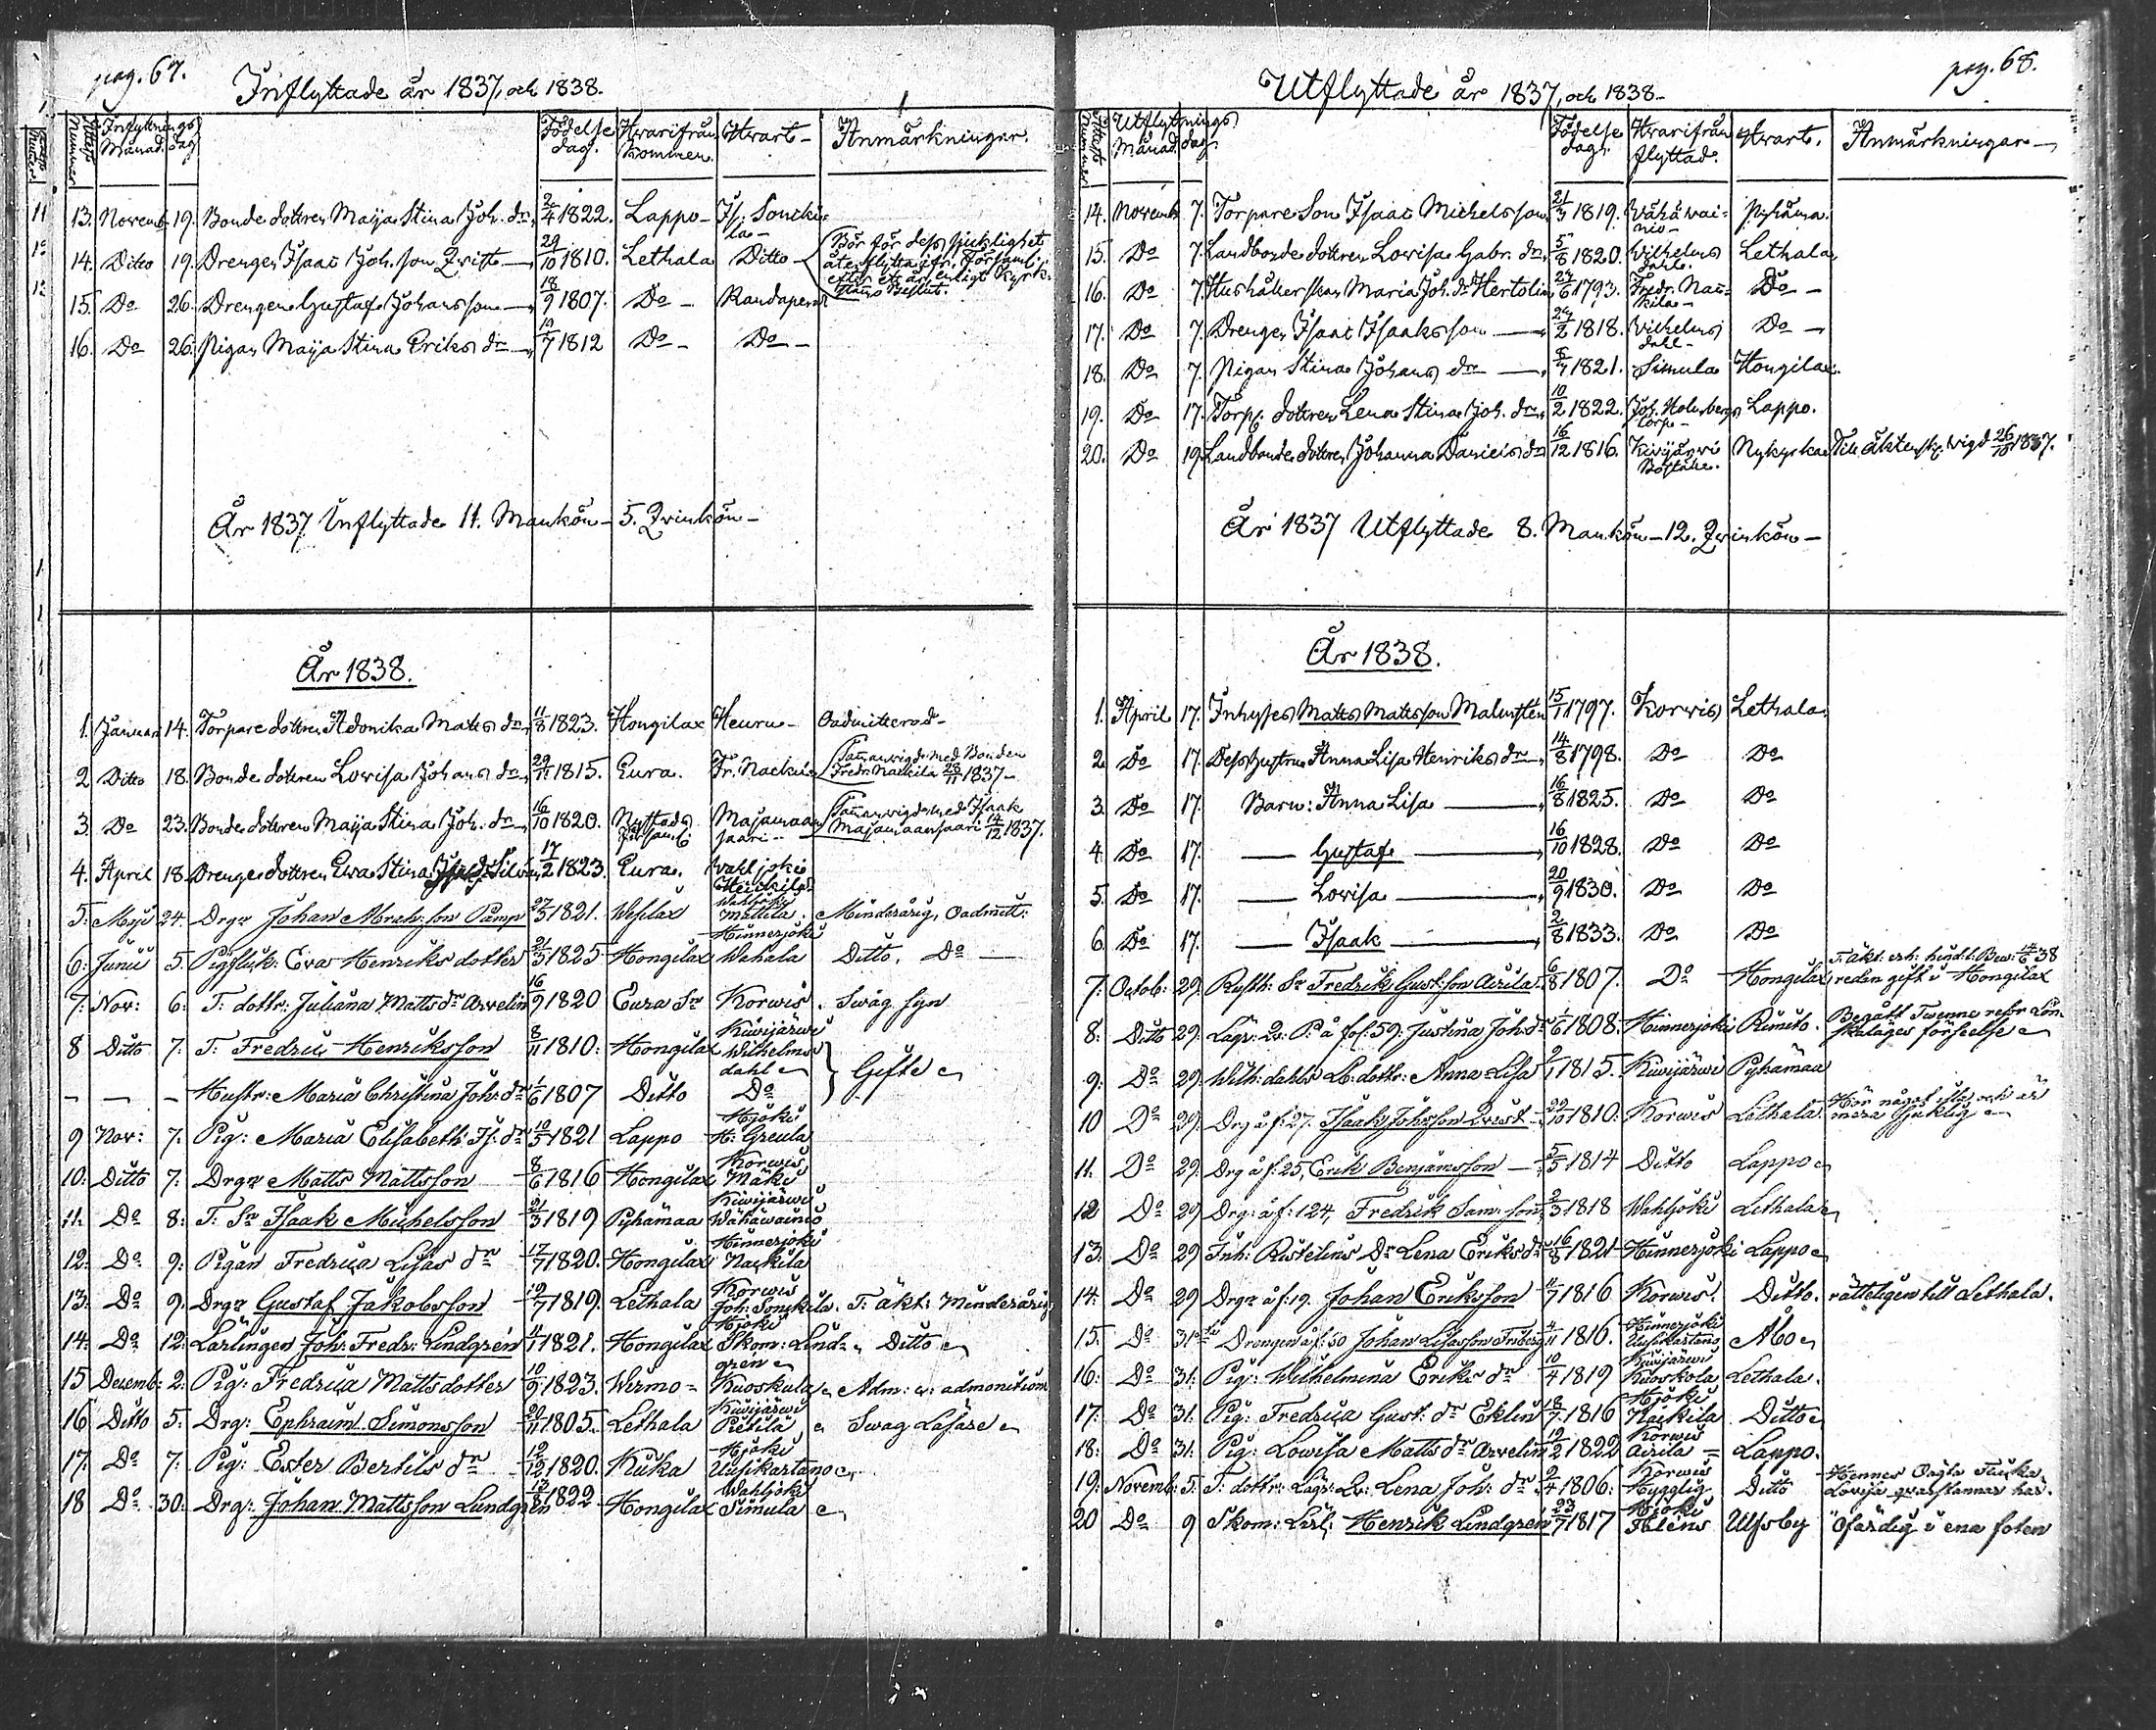 pag. 67.
Inflyttade år 1837, och 1838.
Attests Nummer Inflyttnings Månad. dag Födelse dag. Hvarifrån kommen. Hvart - Anmärkningar.
13. Novemb. 19. Bonde dottren Maija Stina Joh. dr. 2/4 1822. Lappo - Js: Soncki-
la -
14. Ditto 19. Drengen Isaac Joh. son Qvist - 29/10 1810. Lethala Ditto - Bör för dess sjuklighet
återflytta ifr. Församl.
efter ett år enligt Kyrk.
Råds Beslut.
15. Do 26. Drengen Gustaf Johansson - 18/9 1807. Do - Raudapend
16. Do 26. Pigan Maija Stina Eriks dr. - 19/7 1812 Do - Do -
År 1837 Inflyttade 11. Mankön - 5. Qvinkön -
År 1838.
1. Januari 14. Torpare dottren Adonika Matts dr. 11/8 1823. Hongilax Heuru - Oadmitterad -
2 Ditto 18. Bonde dottren Lovisa Johans dr. 29/11 1815. Eura. Fr. Nackila Samanvigd med Bonden
Fredr. Nackila 28/11 1837 -
3. Do 23. Bonde dottren Maija Stina Joh. dr. 16/10 1820. Nystads Majamaan Samanvigd med Isaak
Församl. saari - Majamaansaari 14/12 1837.
4. April 18. Drenge dottren Ewa Stina Silvan 17/2 1823. Eura. Wahljoki
Heickilä
5. Maji 24. Drgn Johan Abrah: son Pamp 27/3 1821. Weslax Wahljoki
Mattila. Minderårig, Oadmitt:
6: Junii 5. Pigflick: Eva Henriks dotter 21/3 1825 Hongilax Hinnerjoki
Wahala Ditto. Do -
7: Nov: 6: T: dottr: Juliana Matts dr Arvelin 16/9 1820 Eura Sn Korwis. Swag syn
8 Ditto 7: T: Fredric Henriksson 8/11 1810: Hongilax Kiwijärwi
Wilhelms
dahl } Gifte
- - - Hustr: Maria Christina Joh: dr 1/6 1807 Ditto Do
9 Nov: 7: Pig: Maria Elisabeth Is: dr 10/5 1821 Lappo Hjoki
H: Greula
10: Ditto 7: Drgn Matts Mattsson 8/6 1816 Hongilax Korwis
Mäki
11: Do 8: T: Sn Isaak Michelsson 21/3 1819 Pyhämaa Kiwijärwi
Wähäwainio
12: Do 9: Pigan Fredrica Lisas dr 17/7 1820. Hongilax Hinnerjoki
Nackila
13: Do 9. Drgn Gustaf Jakobsson 19/7 1819. Lethala Korwis
Joh: Sonckila. T: äkt: Minderårig
14: Do 12: Lärlingen Joh: Fredr: Lindgren 11/7 1821. Hongilax Hjoki
Skom: Lind-
gren Ditto
15 Decemb: 2: Pig: Fredrica Matts dotter 10/9 1823. Wirmo = Kuoskula Adm: a: admonition
16 Ditto 5: Drg: Ephraim Simonsson 20/11 1805. Lethala Kiwijärwi
Pietilä Swag Läsare
17: Do 7: Pig: Ester Bertils dr 19/12 1820. Kiuka Hjoki
Uusikartano
18 Do 30: Drg: Johan Mattsson Lundgren 13/8 1822 Hongilax Wahljoki
Simula
pag. 68.
Utflyttade år 1837, och 1838 -
Attests Nummer Utflyttnings Månad. dag. Födelse dag. Hvarifrån flyttad. Hvart. Anmärkningar -
14. Novemb 7. Torpare Son Isaac Michelsson 21/3 1819. Wähäwai-
nio - Pyhäma.
15. Do 7. Landbonde dottren Lowisa Gabr. dr. 5/8 1820. Wilhelms
dahl. Lethala
16. Do 7. Hushållerskan Maria Joh. dr Hertolin 24/6 1793. Fredr. Nac-
kila - Do -
17. Do 7. Drengen Isaac Isaksson - 24/2 1818. Wilhelms
dahl - Do -
18. Do 7. Pigan Stina Johans dr. - 6/7 1821. Simula Hongilax
19. Do 17. Torp. dottren Lena Stina Joh. dr. 10/2 1822. Joh. Holmbergs
torp - Lappo.
20. Do 19. Landbonde dottren Johanna Daniels dr 16/12 1816. Kivijärvi
Boställe. Nykyrka Till äktensk. Vigd 26/10 1837.
År 1837 Utflyttade 8. Mankön - 12. Qvinkön -
År 1838.
1. April 17. Inhyses Matts Mattsson Malmsten 15/1 1797. Korwis Lethala
2. Do 17. Dess Hustru Anna Lisa Henriks dr. 14/8 1798. Do Do
3. Do 17. Barn: Anna Lisa - 16/8 1825. Do Do
4. Do 17. - Gustaf - 16/10 1828. Do Do
5. Do 17. - Lovisa - 20/9 1830. Do Do
6. Do 17. - Isaak - 2/8 1833. Do Do
7: Octob: 29. Rusth: Sn Fredrik Gust:son Airila 6/8 1807. Do Hongilax T: äkt: erh: hind:l: Bew: 14/6 38
redan gift i Hongilax
8: Ditto 29. Lägr: Qv: P: å fol: 59: Justina Joh: dr 1/6 1808: Hinnerjoki Rimito. Begått Twenne resor Lön-
skaläges förseelse
9: Do 29. Wilh: dahls Lb: dottr: Anna Lisa 2/1 1815. Kiwijärwi Pyhämaa
10 Do 29. Drg å f: 27. Isaak Johsson Qvist 29/10 1810: Korwis Lethala. Hör något illa, och är
mera sjuklig
11. Do 29. Drg å f: 25, Erik Benjamsson - 5/5 1814 Ditto Lappo
12 Do 29 Drg: å f: 124, Fredrik Sam: son 2/3 1818 Wahljoki Lethala
13: Do 29 Inh: Ristelins Dr Lena Eriks dr 16/8 1821 Hinnerjoki Lappo
14: Do 29 Drgn å f. 19. Johan Eriksson 11/7 1816 Korwis. Ditto. rätteligen till Lethala.
15: Do 31ste Drengen å f: 50 Johan Lisasson Friberg 4/11 1816. Hinnerjoki
Uusikartano Åbo
16: Do 31: Pig: Wilhelmina Eriks dr 10/4 1819 Kiwijärwi
Kuoskola Lethala.
17: Do 31: Pig: Fredrica Gust: dr Eklin 18/7 1816 Hjoki
Nackila Ditto
18: Do 31: Pig: Lowisa Matts dr Arvelin 19/2 1822 Korwis
Airila = Lappo.
19: Novemb: 5: T: dottr: Lägr: Qv: Lena Joh: dr 2/4 1806: Korwis
Hygglig Ditto Hennes Oägta Flicka
Lovisa qvarstannar här.
20 Do 9 Skom: Lärl: Henrik Lindgren 23/7 1817 Hjoki
Ihlens Ulfsby Ofärdig i ena foten